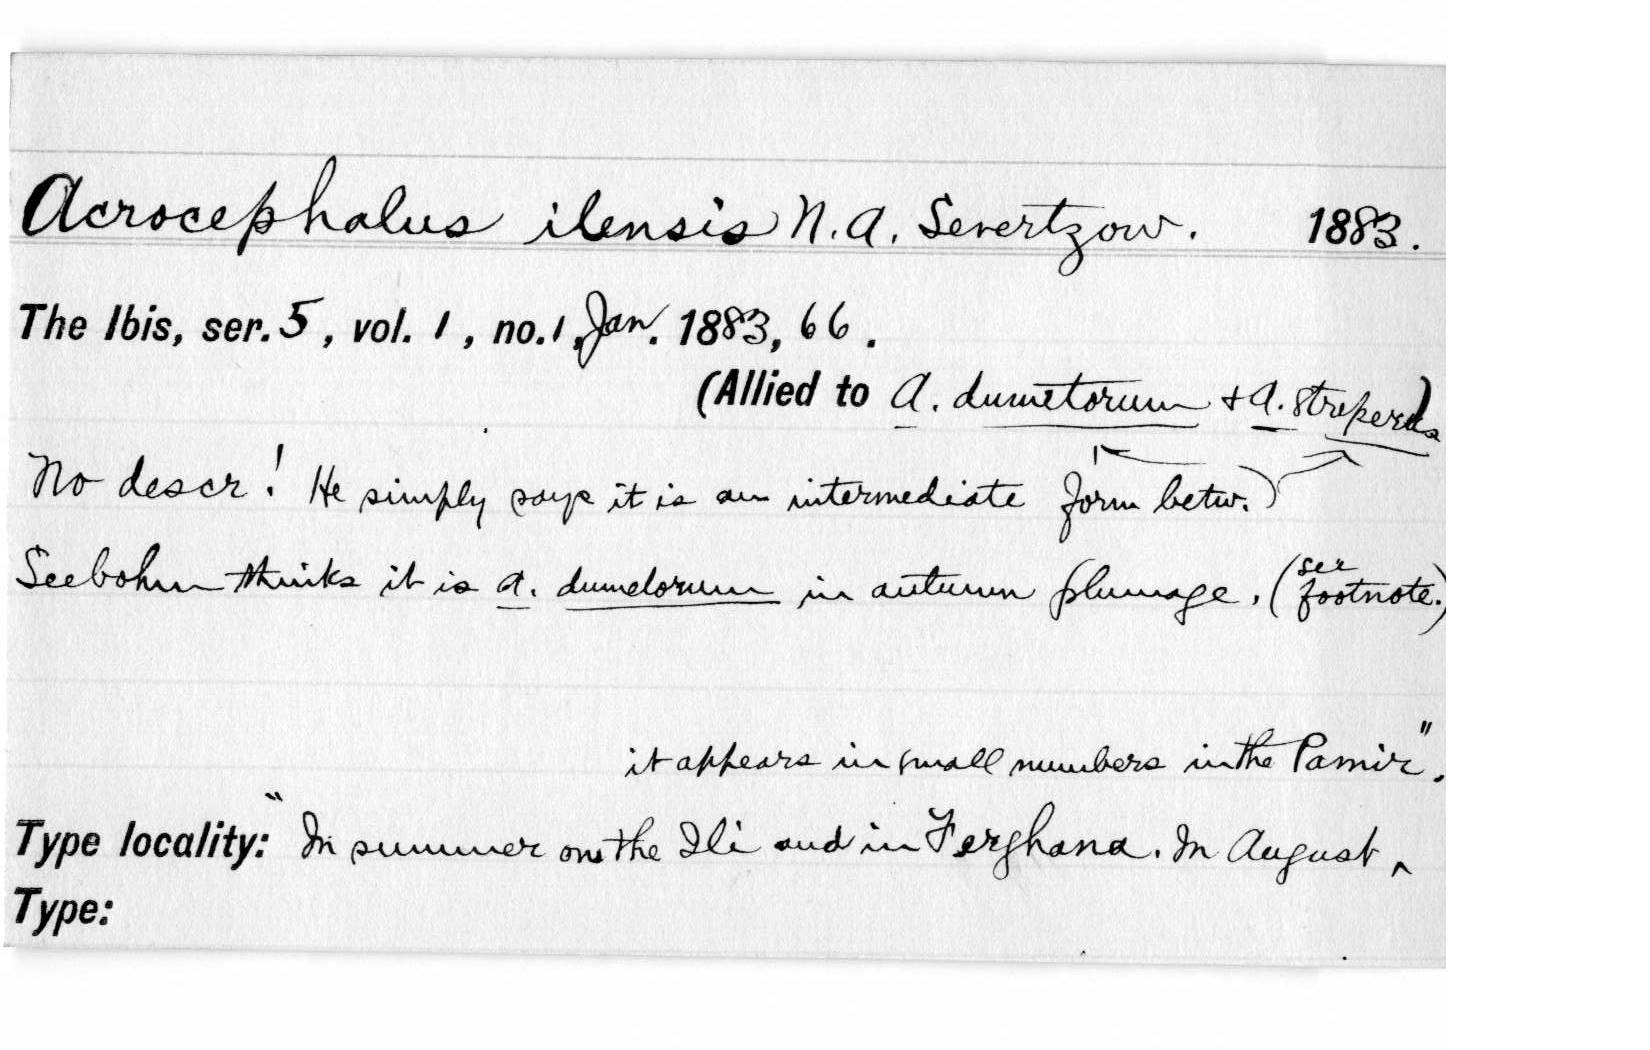 Acrocephalus ilensis N.A. Severtzow. 1883.
The Ibis, ser. 5, vol. 1, no. 1, Jan. 1883, 66.
(Allied to A. dumetorum + A. strepera)
No descr! He simply says it is an intermediate form betw.
Seebohm thinks it is A. dumetorum in autumn plumage. (see footnote.)
it appears in small numbers in the Pamir".
Type locality: "In summer on the Ili and in Ferghana. In August ^
Type: